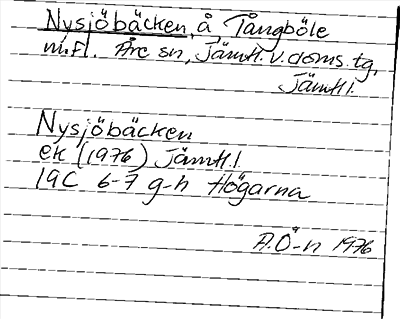 Nysjöbäcken, å, Tångböle
m.fl. Åre sn, Jämtl. v. doms. tg,
Jämtl.
Nysjöbäcken
ek (1976) Jämtl.
19C 6-7 g-h Högarna
A.Ö-n 1976